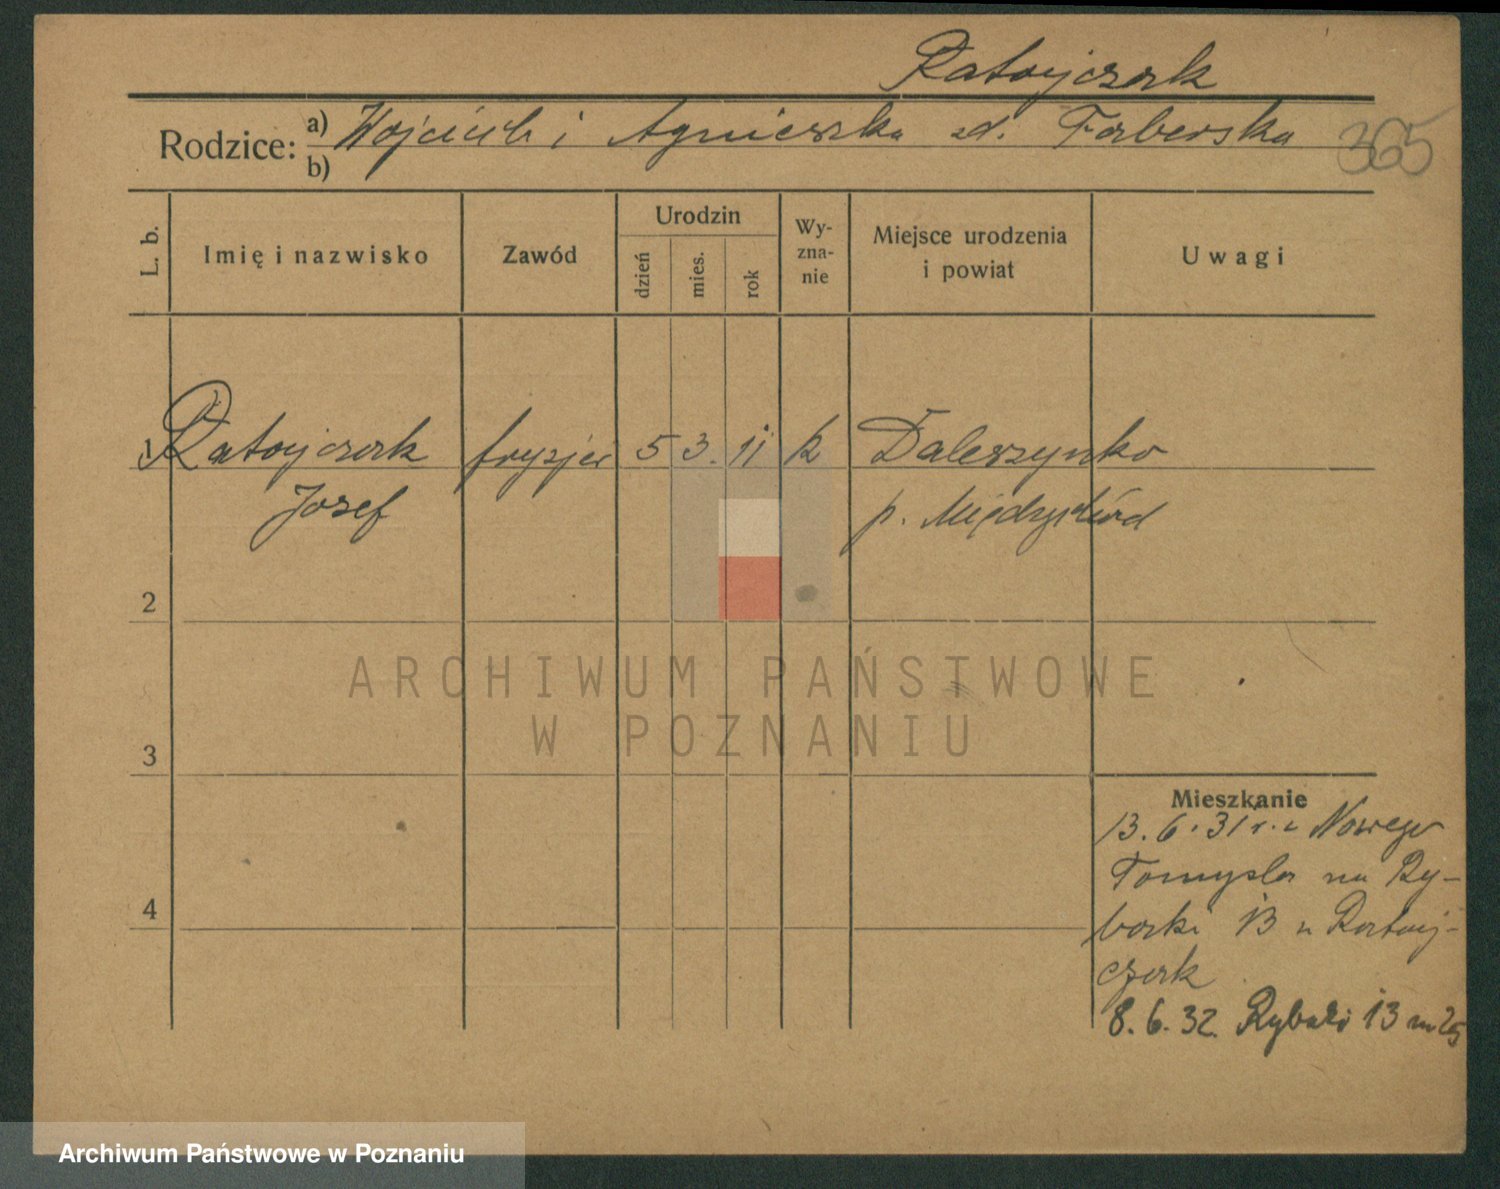 Ratajczak
Rodzice: a) Wojciech i Agnieszka zd. Farberska
b)
365
L. b.
Imię i nazwisko
Zawód
Urodzin
dzień
mies.
rok
Wy-
zna-
nie
Miejsce urodzenia
i powiat
Uwagi
1 Ratajczak fryzjer 5 3. 11 k Daleszynko
Józef p. Międzychód
2
3
4
ARCHIWUM PAŃSTWOWE
W POZNANIU
Mieszkanie
13. 6. 31 r. z Nowego
Tomyśla na Ry-
baki 13 u Rataj-
czak
8. 6. 32. Rybaki 13 m 25
Archiwum Państwowe w Poznaniu